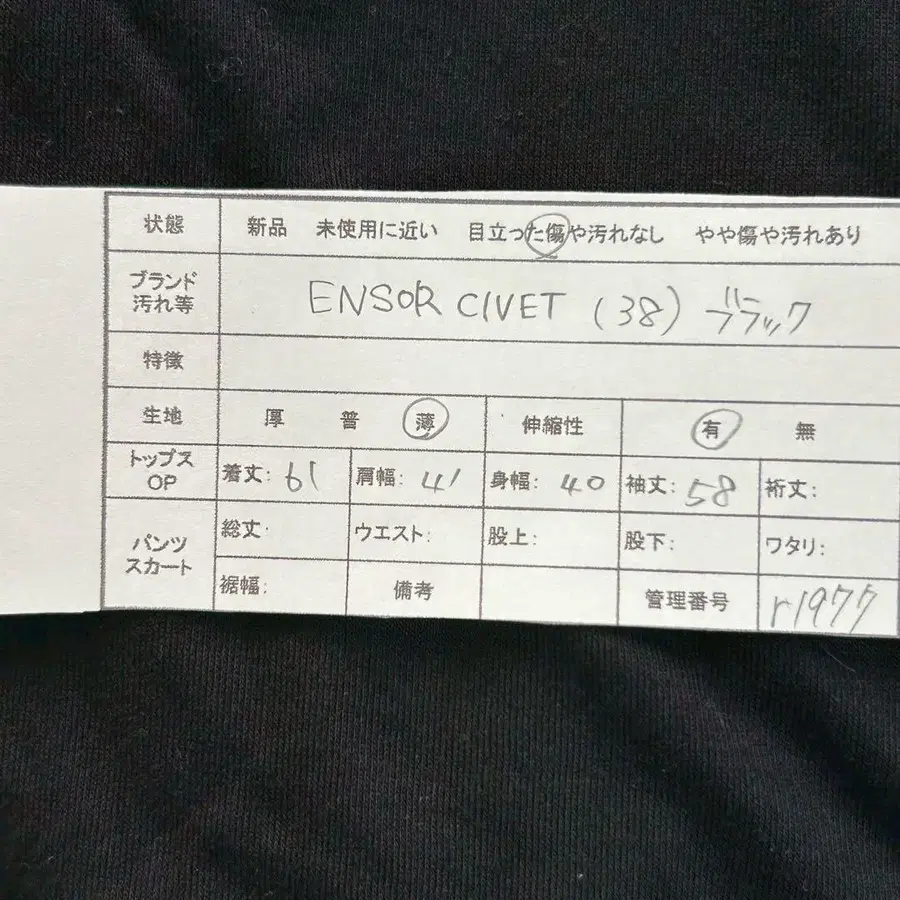 状態 新品 未使用に近い 目立った傷や汚れなし やや傷や汚れあり
ブランド
汚れ等
ENSOR CIVET (38) ブラック
特徴
生地 厚 普 薄 伸縮性 有 無
トップス
OP
着丈: 61 肩幅: 41 身幅: 40 袖丈: 58 裄丈:
パンツ
スカート
総丈: ウエスト: 股上: 股下: ワタリ:
裾幅: 備考 管理番号 r1977